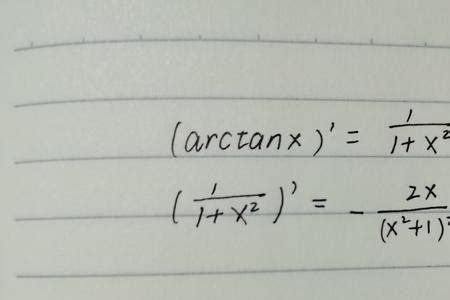 (arctanx)' = 1/(1+x²
(1/(1+x²))' = - 2x/(x²+1)²